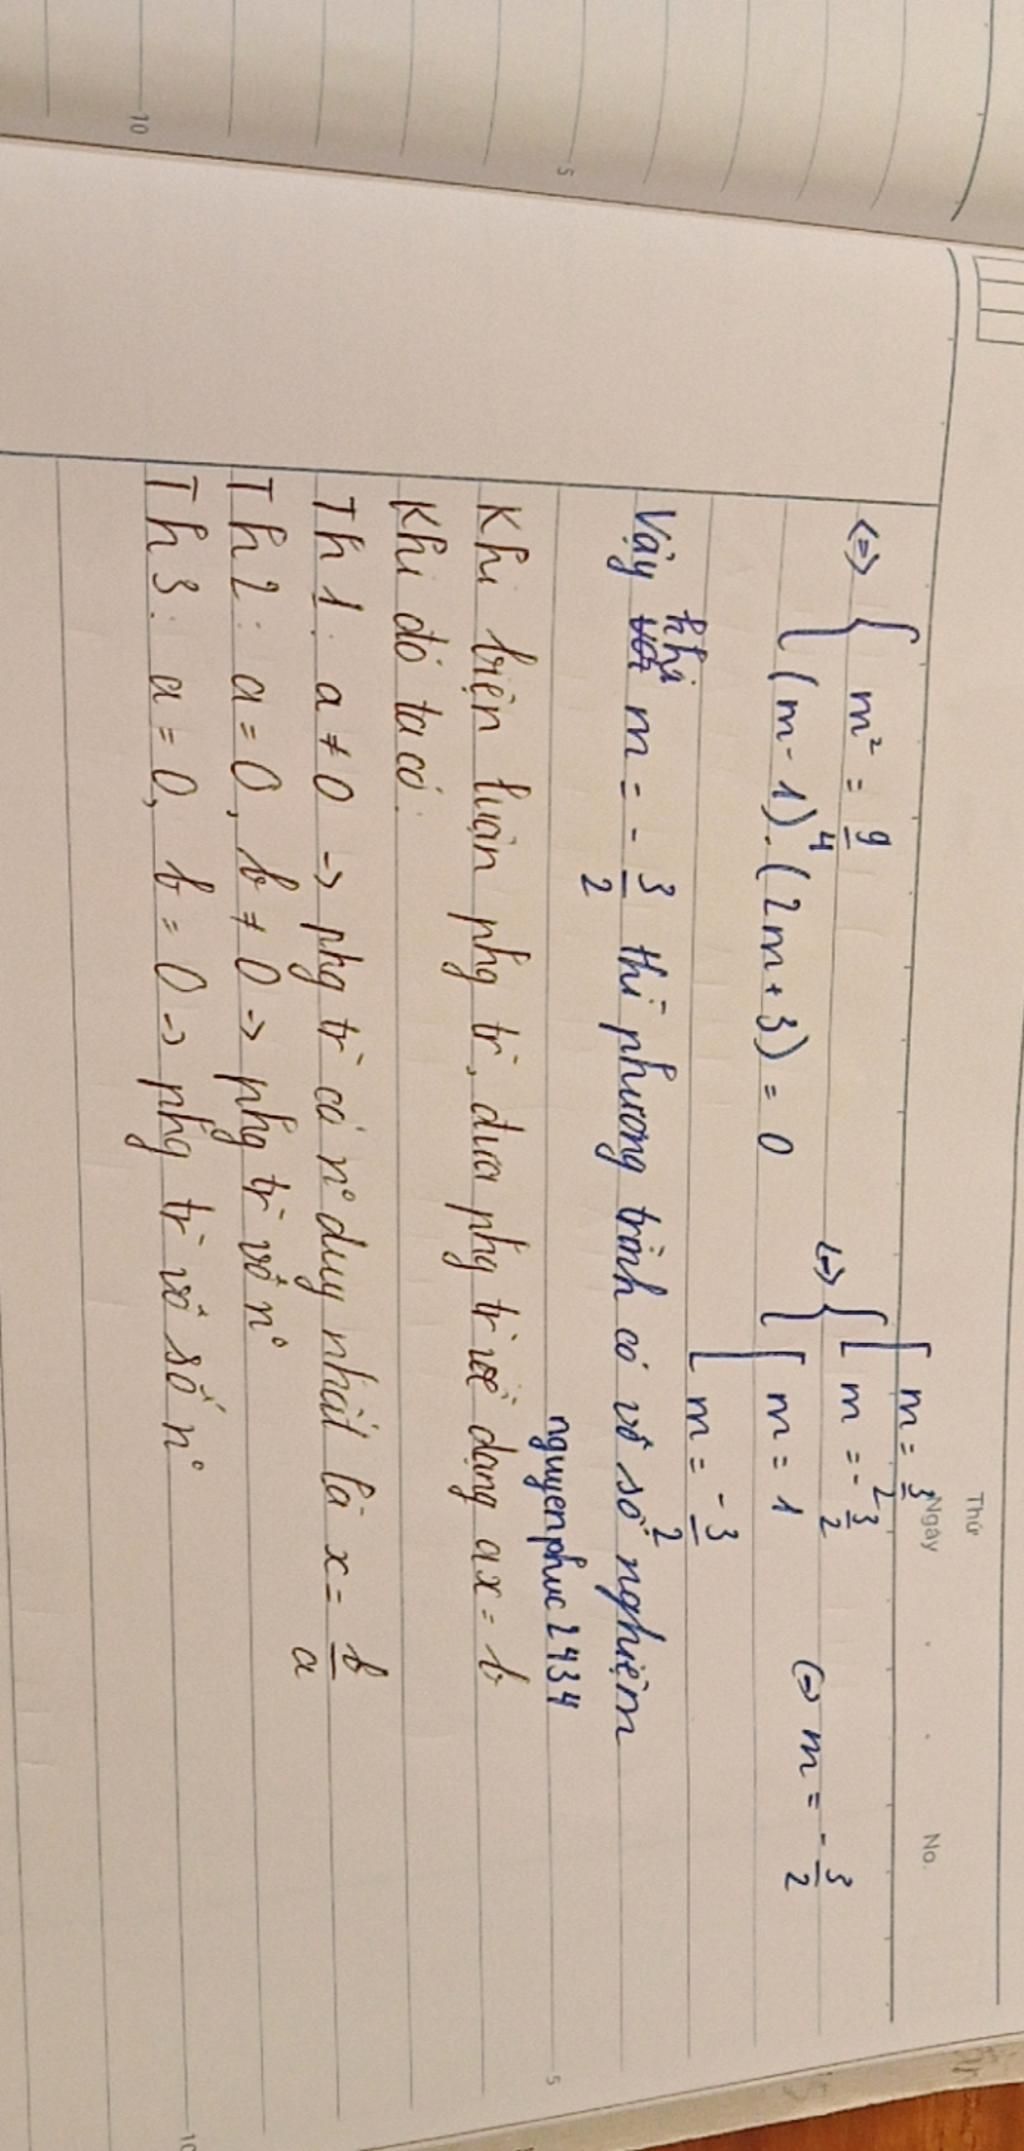 Thứ
Ngày
No.
m = 3/2
<=> { m² = 9/4 <=> { [ m = -3/2 <=> m = -3/2
(m - 1).(2m + 3) = 0 [ m = 1
m = -3/2
khi
Vậy m = -3/2 thì phương trình có vô số nghiệm
nguyenphuc2434
Khi biện luận phg tr̀, đưa phg tr̀ về dạng ax = b
Khi đó ta có:
Th1: a ≠ 0 -> phg tr̀ có n° duy nhất là x = b/a
Th2: a = 0, b ≠ 0 -> phg tr̀ vô n°
Th3: a = 0, b = 0 -> phg tr̀ vô số n°
5
10
5
10